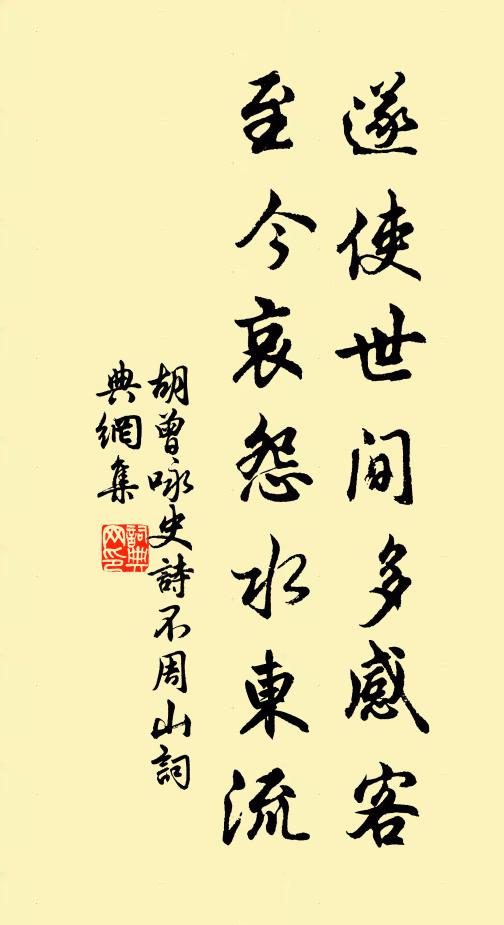 遂使世间多感客
至今哀怨水東流
胡曾咏史詩不周山詞
典網集
詞典網印